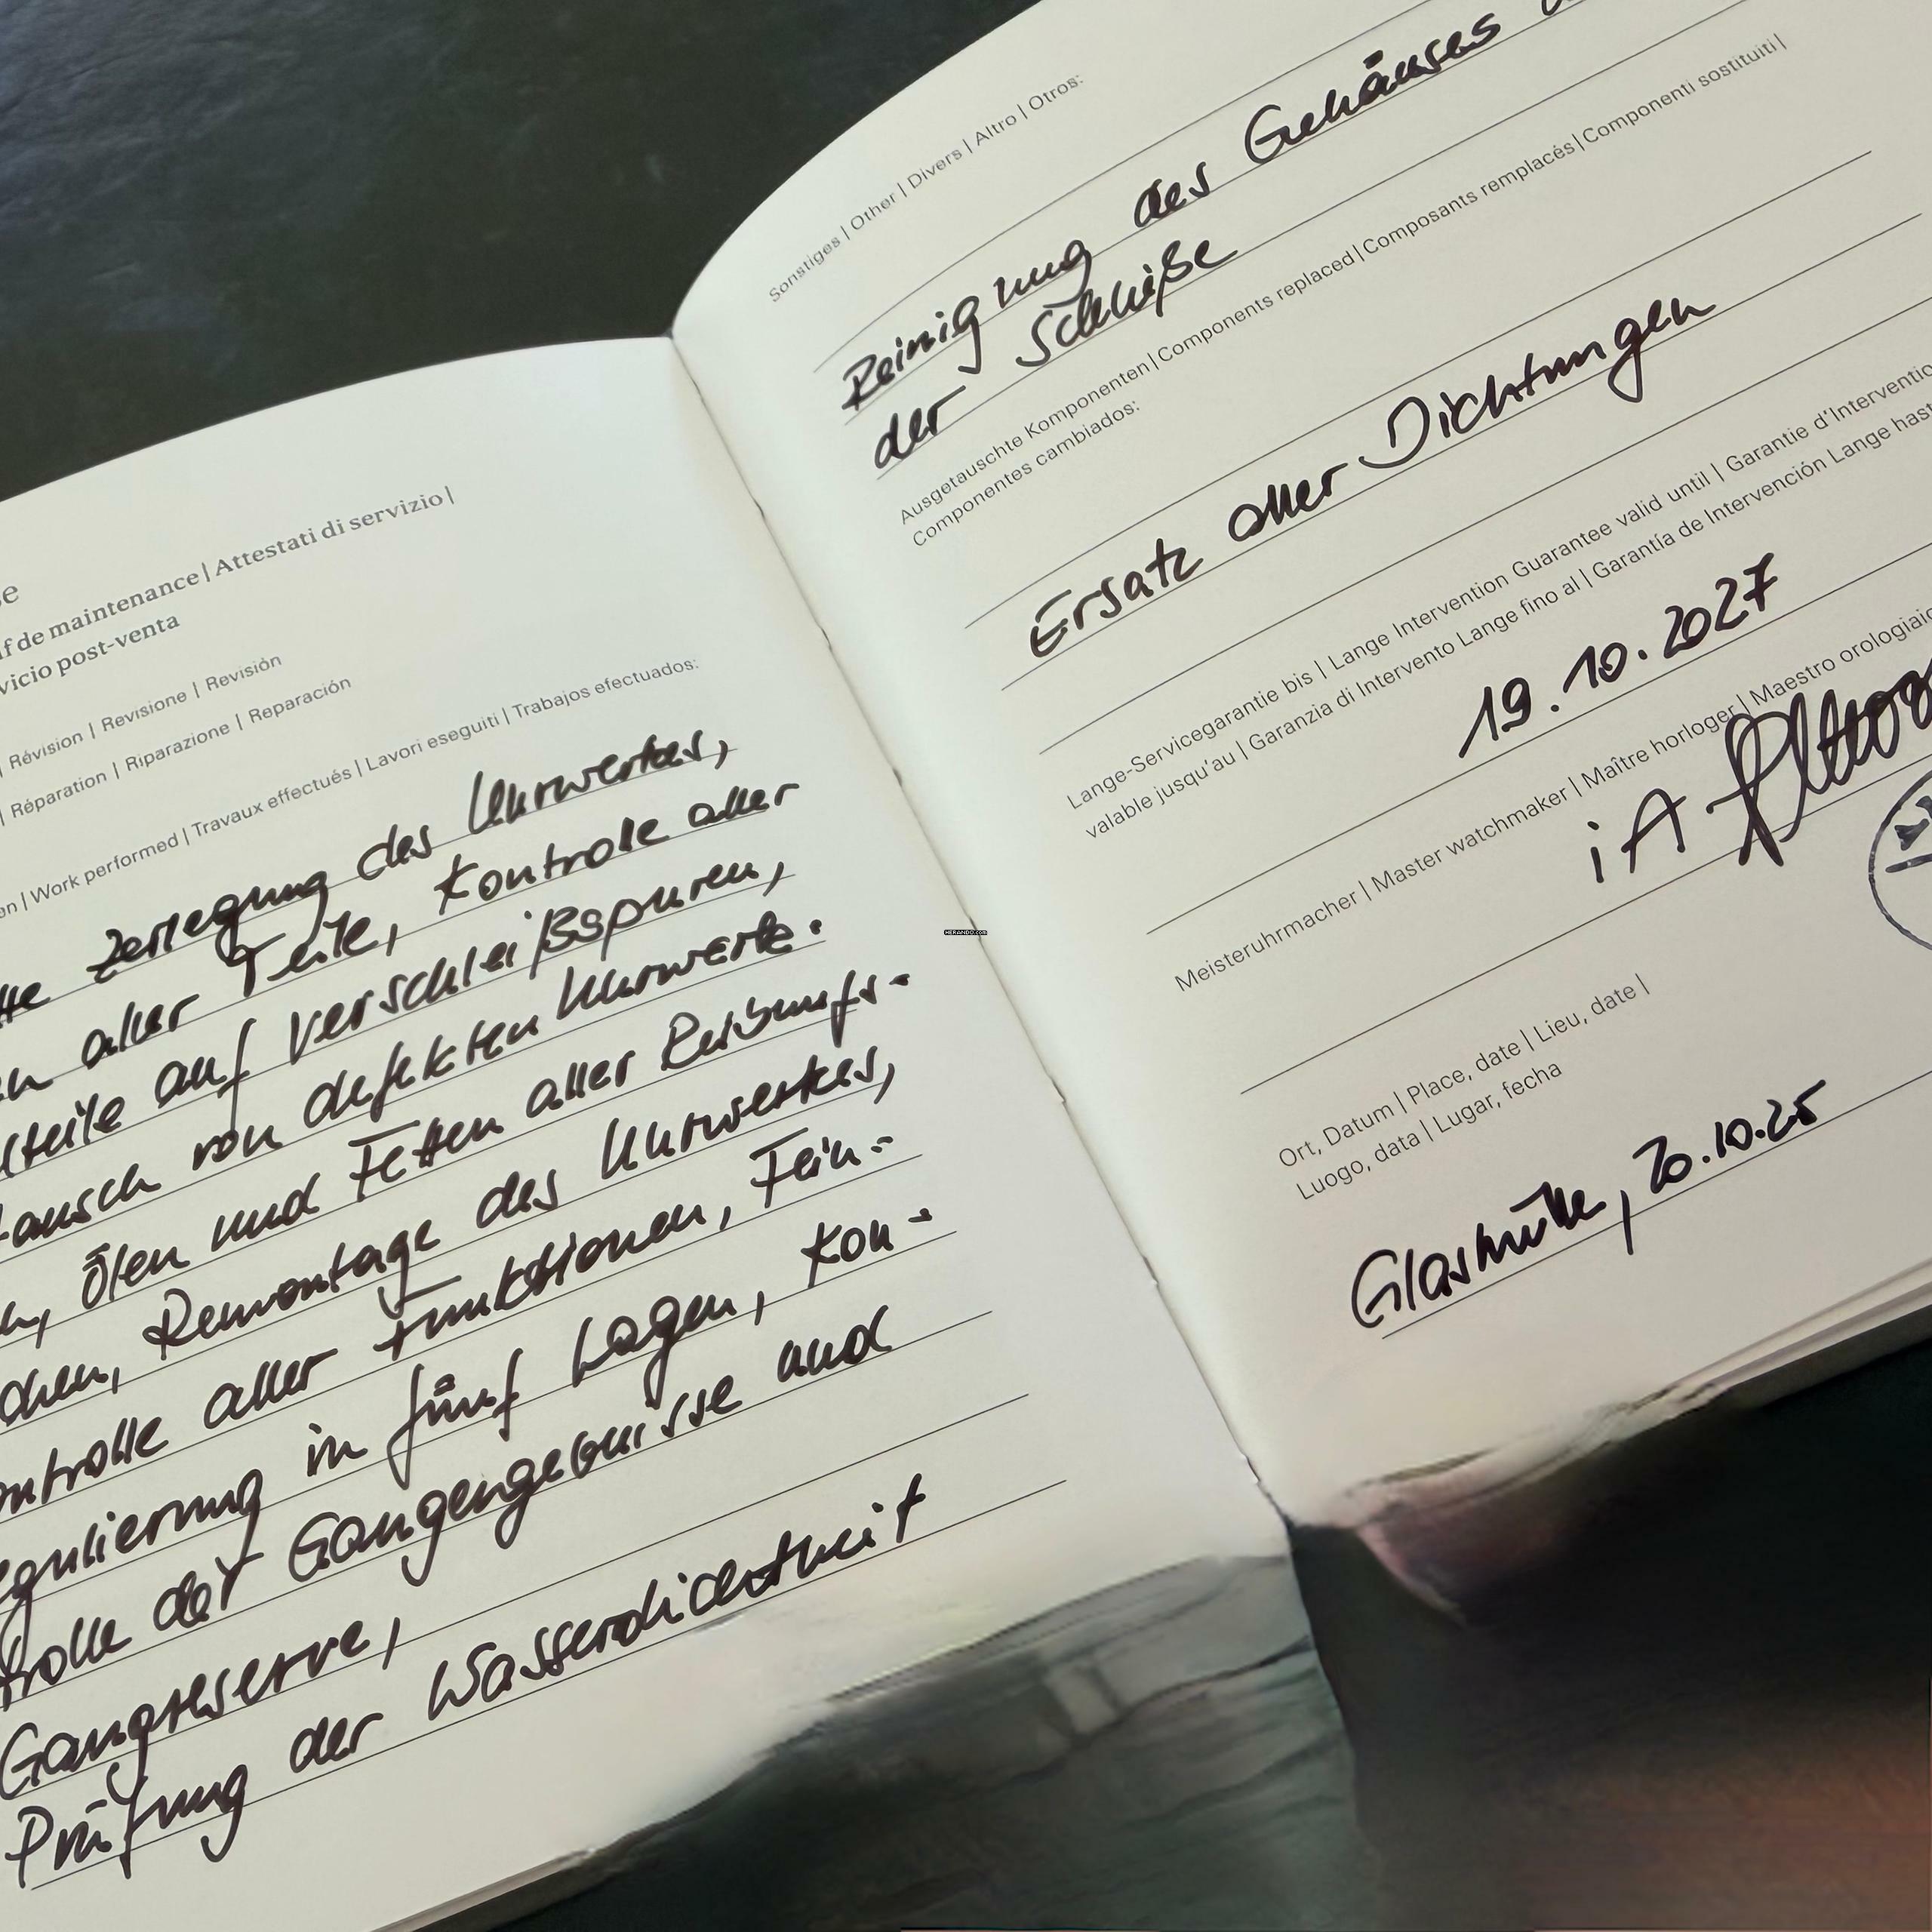 se
if de maintenance | Attestati di servizio |
vicio post-venta
| Révision | Revisione | Revisión
| Réparation | Riparazione | Reparación
en | Work performed | Travaux effectués | Lavori eseguiti | Trabajos efectuados:
tte Zerlegung des Uhrwerkes,
en aller Teile, Kontrolle aller
lteile auf Verschleißspuren,
tausch von defekten Uhrwerkt.
n, Ölen und Fetten aller Reibungs-
chen, Remontage des Uhrwerkes,
ontrolle aller Funktionen, Fein-
egulierung in fünf Lagen, Kon-
trolle der Gangergebnisse und
Gangreserve,
Prüfung der Wasserdichtheit
Sonstiges | Other | Divers | Altro | Otros:
Reinigung des Gehäuses
der Schließe
Ausgetauschte Komponenten | Components replaced | Composants remplacés | Componenti sostituiti |
Componentes cambiados:
Ersatz aller Dichtungen
Lange-Servicegarantie bis | Lange Intervention Guarantee valid until | Garantie d'Interventio
valable jusqu'au | Garanzia di Intervento Lange fino al | Garantía de Intervención Lange hast
19.10.2027
Meisteruhrmacher | Master watchmaker | Maître horloger | Maestro orologiaio
iA
Ort, Datum | Place, date | Lieu, date |
Luogo, data | Lugar, fecha
Glashütte, 20.10.25
HERANDO.com